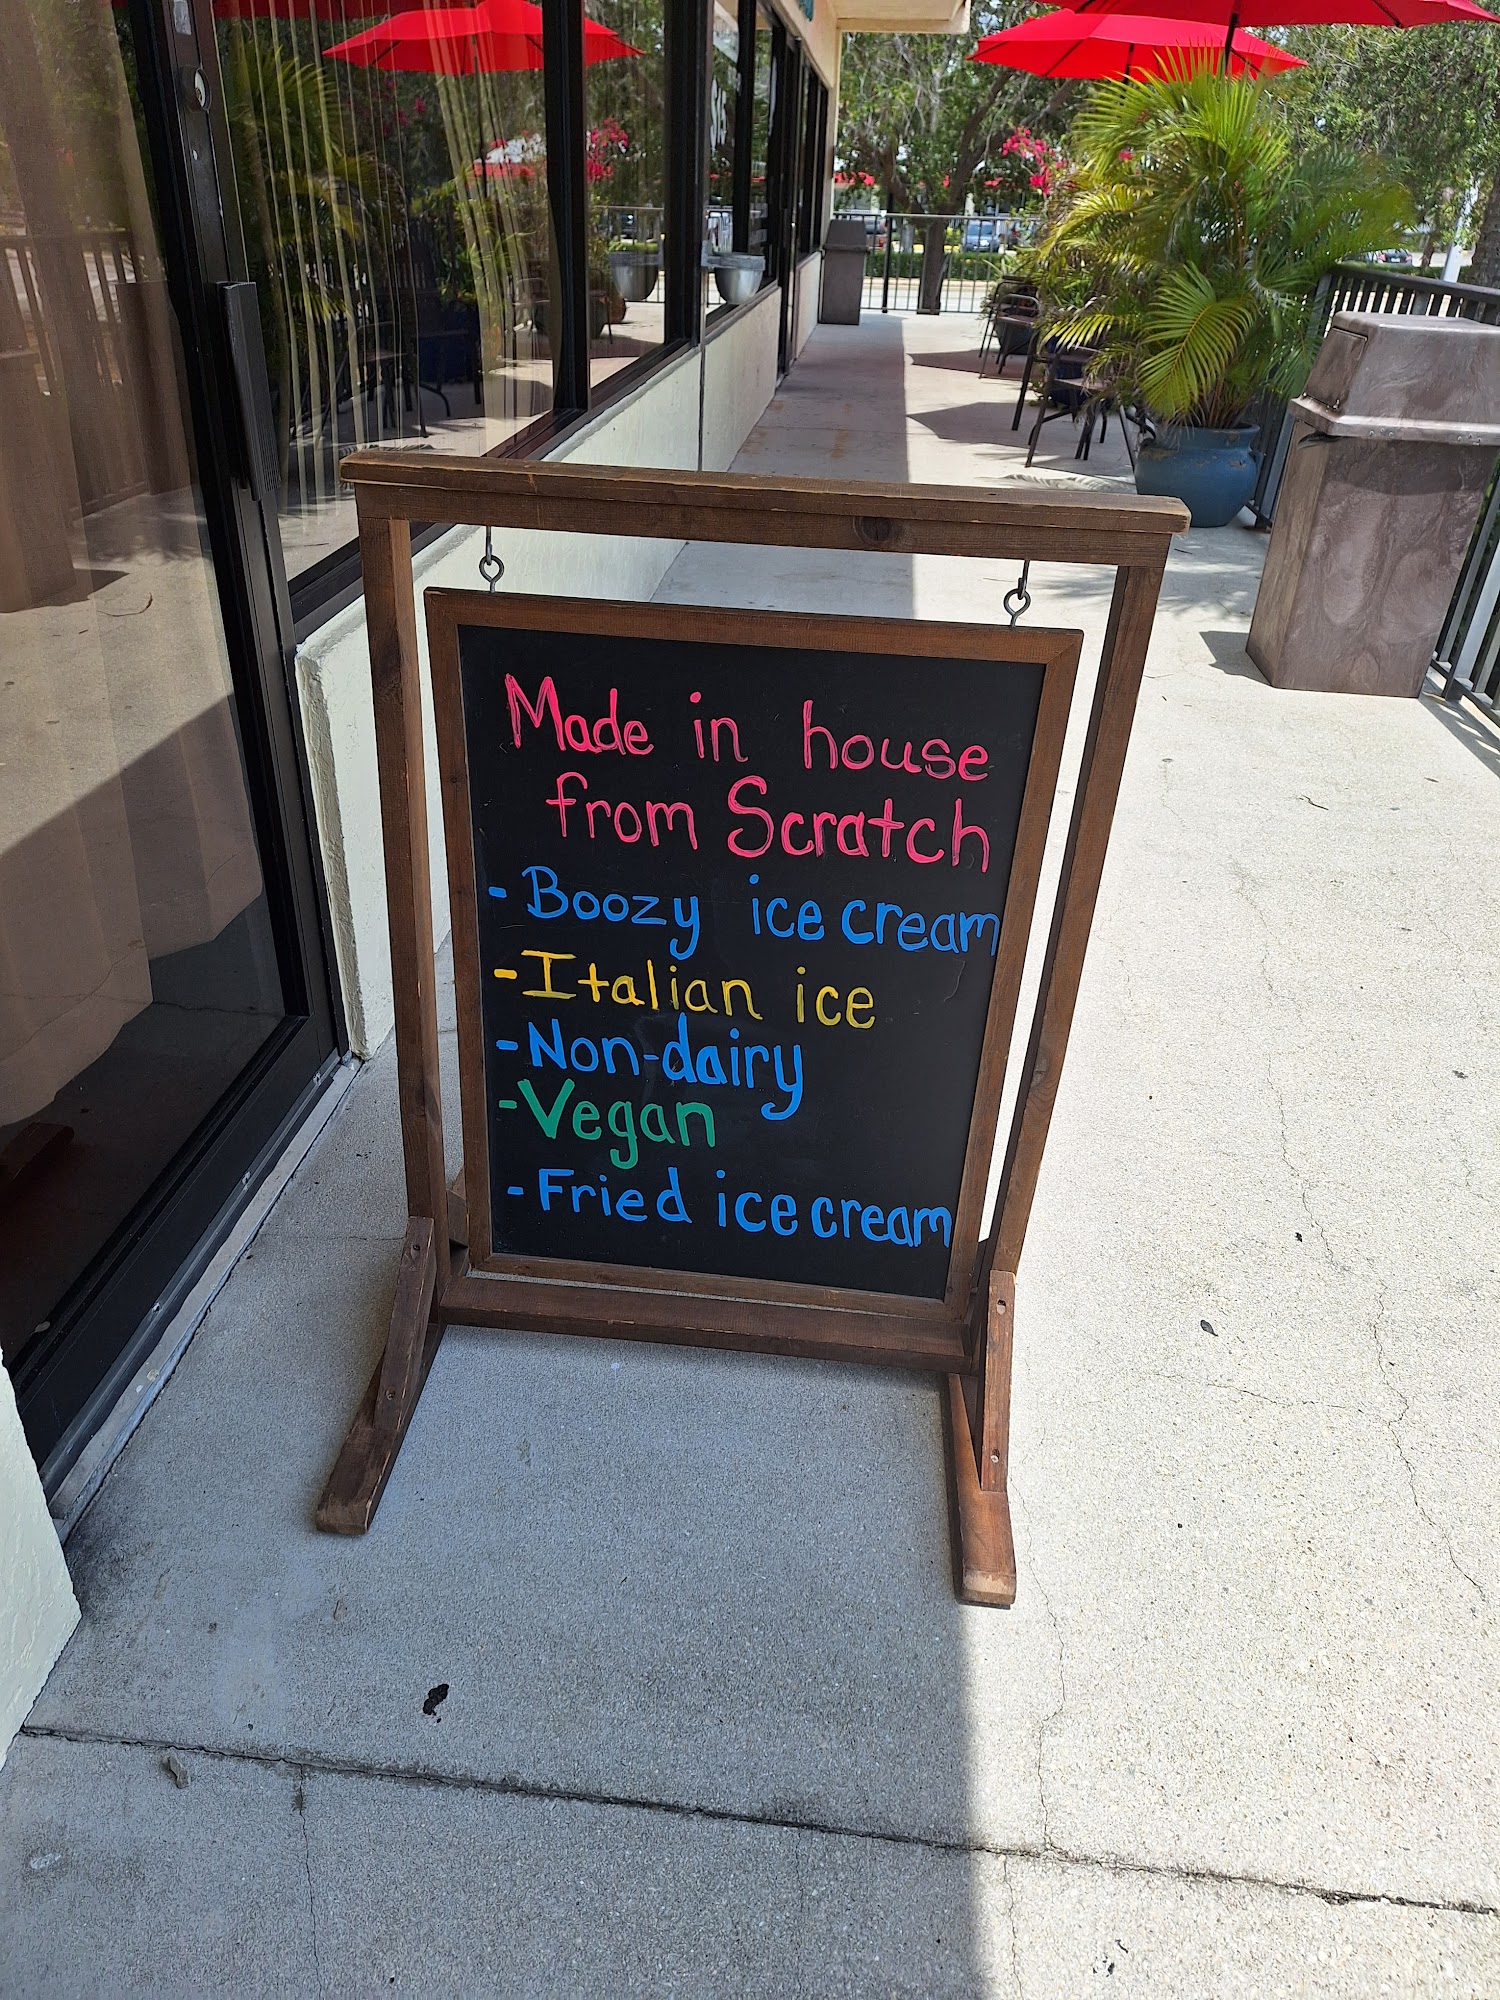 Made in house
from Scratch
- Boozy ice cream
- Italian ice
- Non-dairy
- Vegan
- Fried ice cream